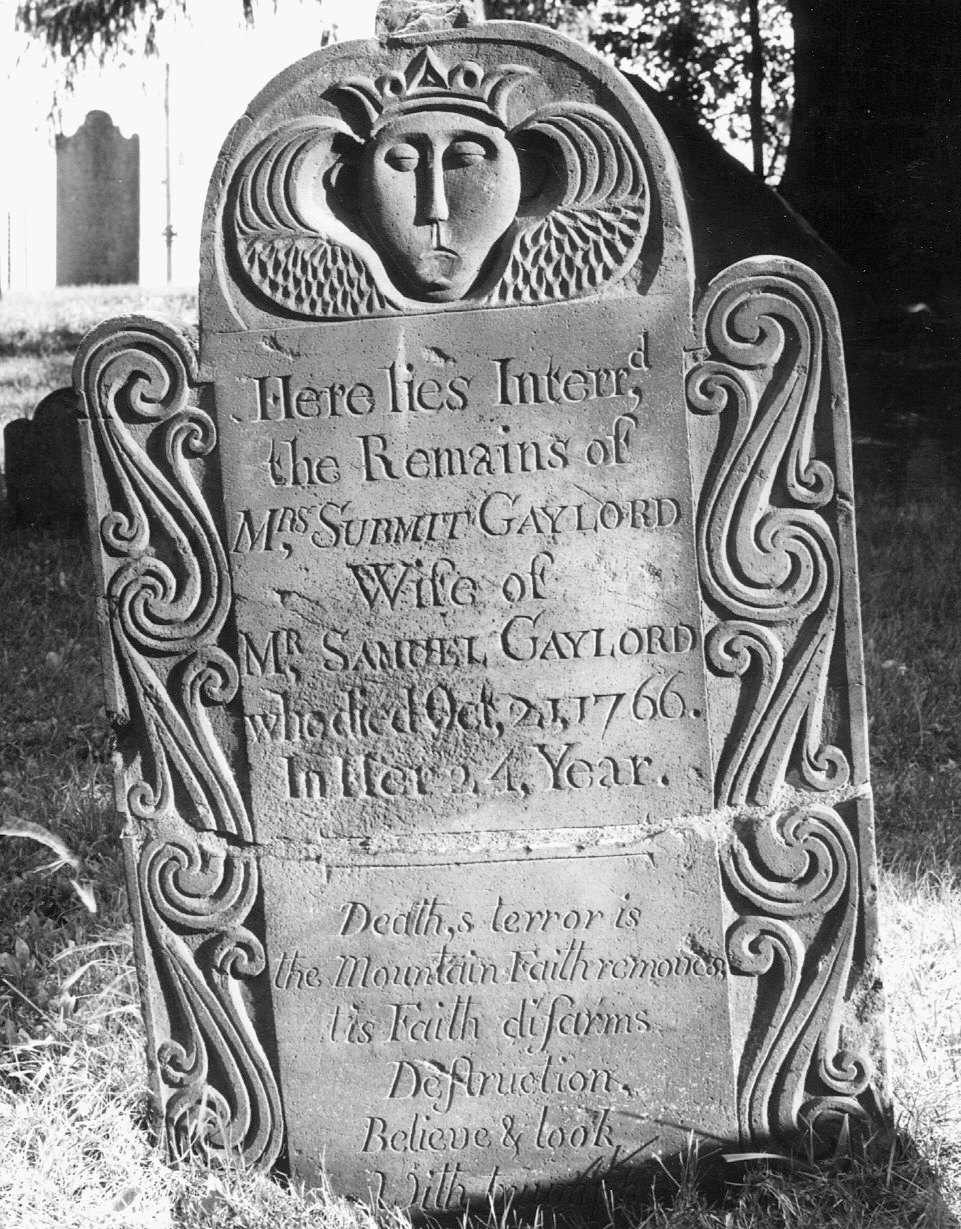 Here lies Interr,d
the Remains of
Mrs, SUBMIT GAYLORD
Wife of
MR, SAMUEL GAYLORD
who died Oct, 21, 1766.
In Her 24, Year.
Death,s terror is
the Mountain Faith removes,
tis Faith diſarms
Deſtruction,
Believe & look
With